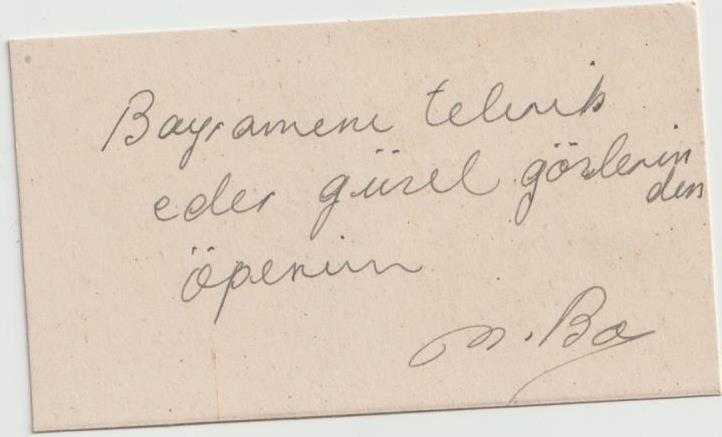 Bayramenı tebrik
eder güzel gözlerin
den
öperim